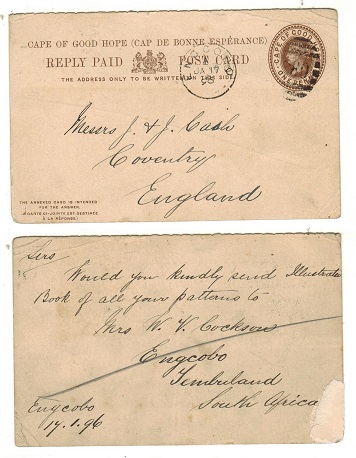 CAPE OF GOOD HOPE (CAP DE BONNE ESPÉRANCE)
REPLY PAID POST CARD
THE ADDRESS ONLY TO BE WRITTEN ON THIS SIDE.
CAPE OF GOOD
JA 17
96
Messrs J. & J. Cash
Coventry
England
THE ANNEXED CARD IS INTENDED
FOR THE ANSWER.
LA CARTE CI-JOINTE EST DESTINÉE
À LA RÉPONSE
Sirs
Would you kindly send Illustrated
Book of all your patterns to
Mrs W. V. Cockson
Engcobo
Tembuland
South Africa
Engcobo
17.1.96